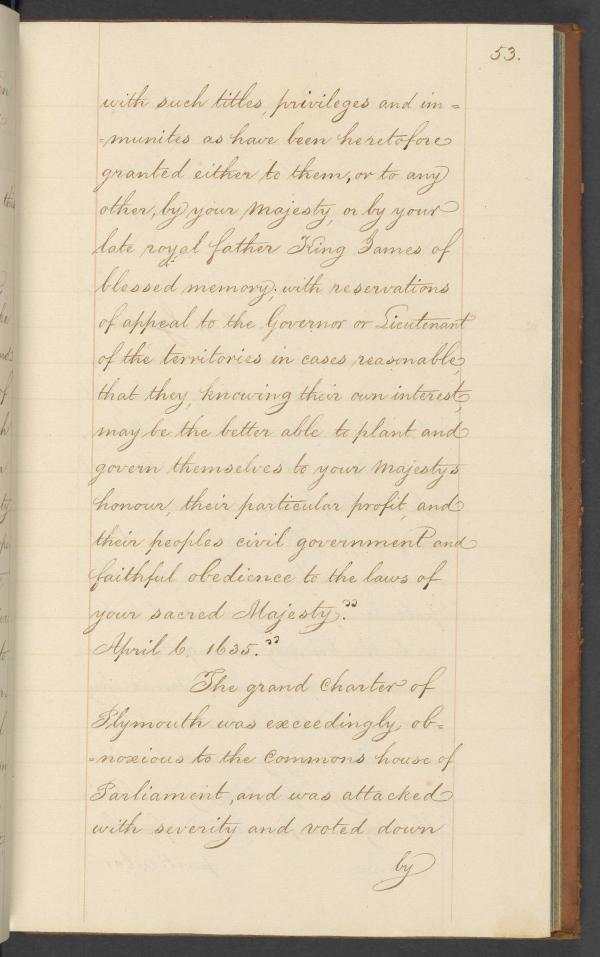 53.
with such titles, privileges and im=
=munites as have been heretofore
granted either to them, or to any
other, by your Majesty, or by your
late royal father King James of
blessed memory; with reservations
of appeal to the Governor or Lieutenant
of the territories in cases reasonable,
that they, knowing their own interest,
may be the better able to plant and
govern themselves to your Majestys
honour, their particular profit, and
their peoples civil government and
faithful obedience to the laws of
your sacred Majesty."
April 6. 1635."
The grand Charter of
Plymouth was exceedingly ob=
=noxious to the Commons house of
Parliament, and was attacked
with severity and voted down
by